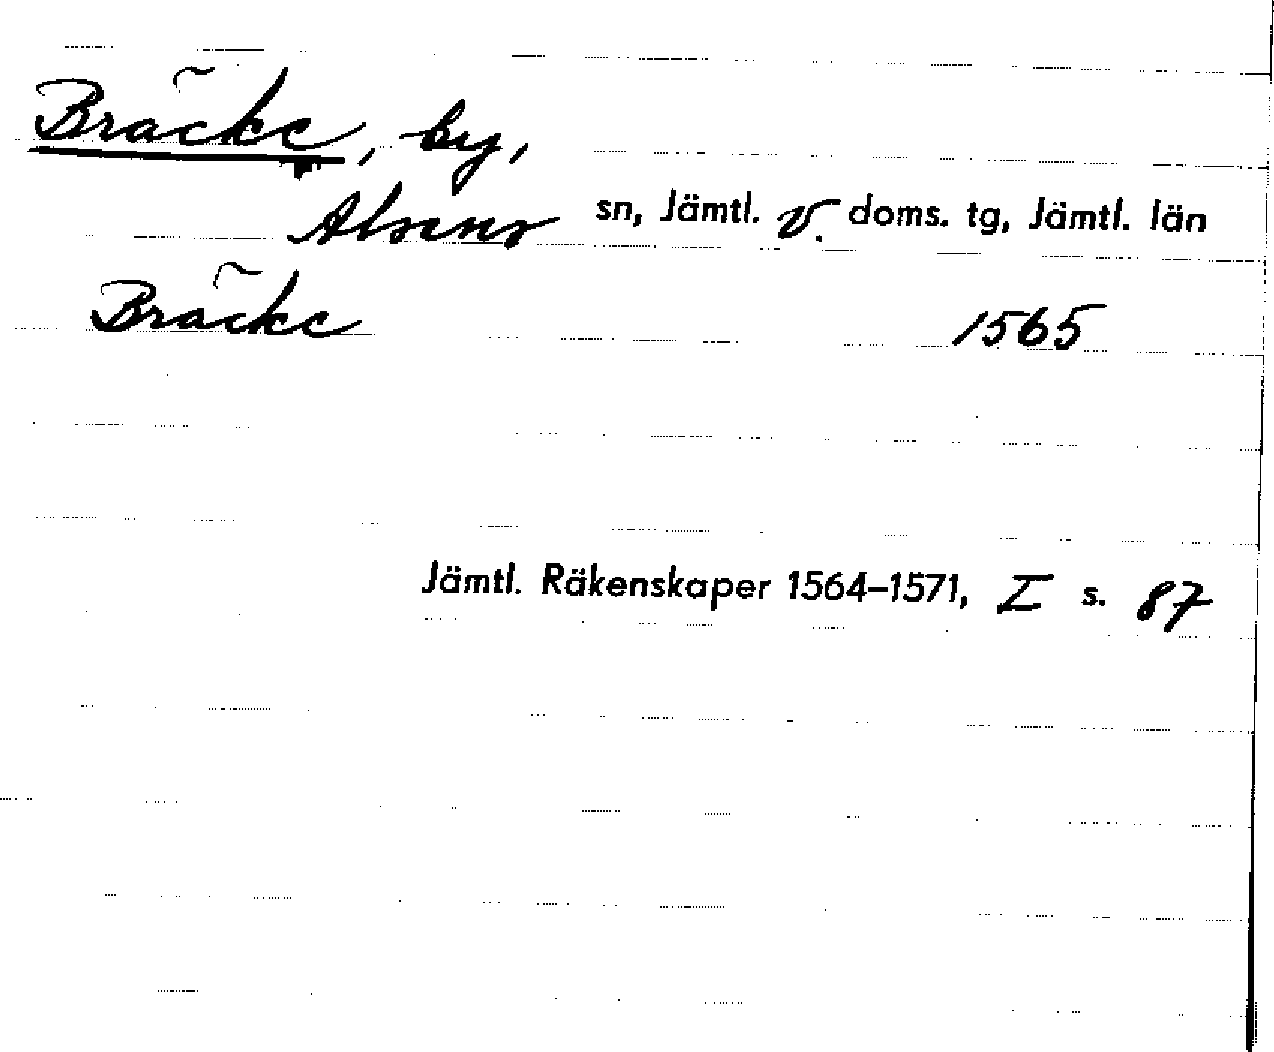 Bräcke, by,
Alsens sn, Jämtl. v. doms. tg, Jämtl. län
Bräcke 1565
Jämtl. Räkenskaper 1564–1571, I s. 87